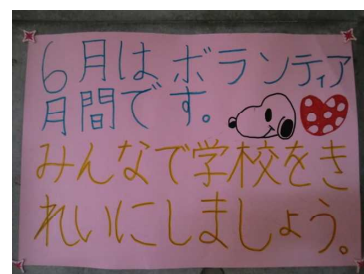 6月はボランティア
月間です。
みんなで学校をき
れいにしましょう。